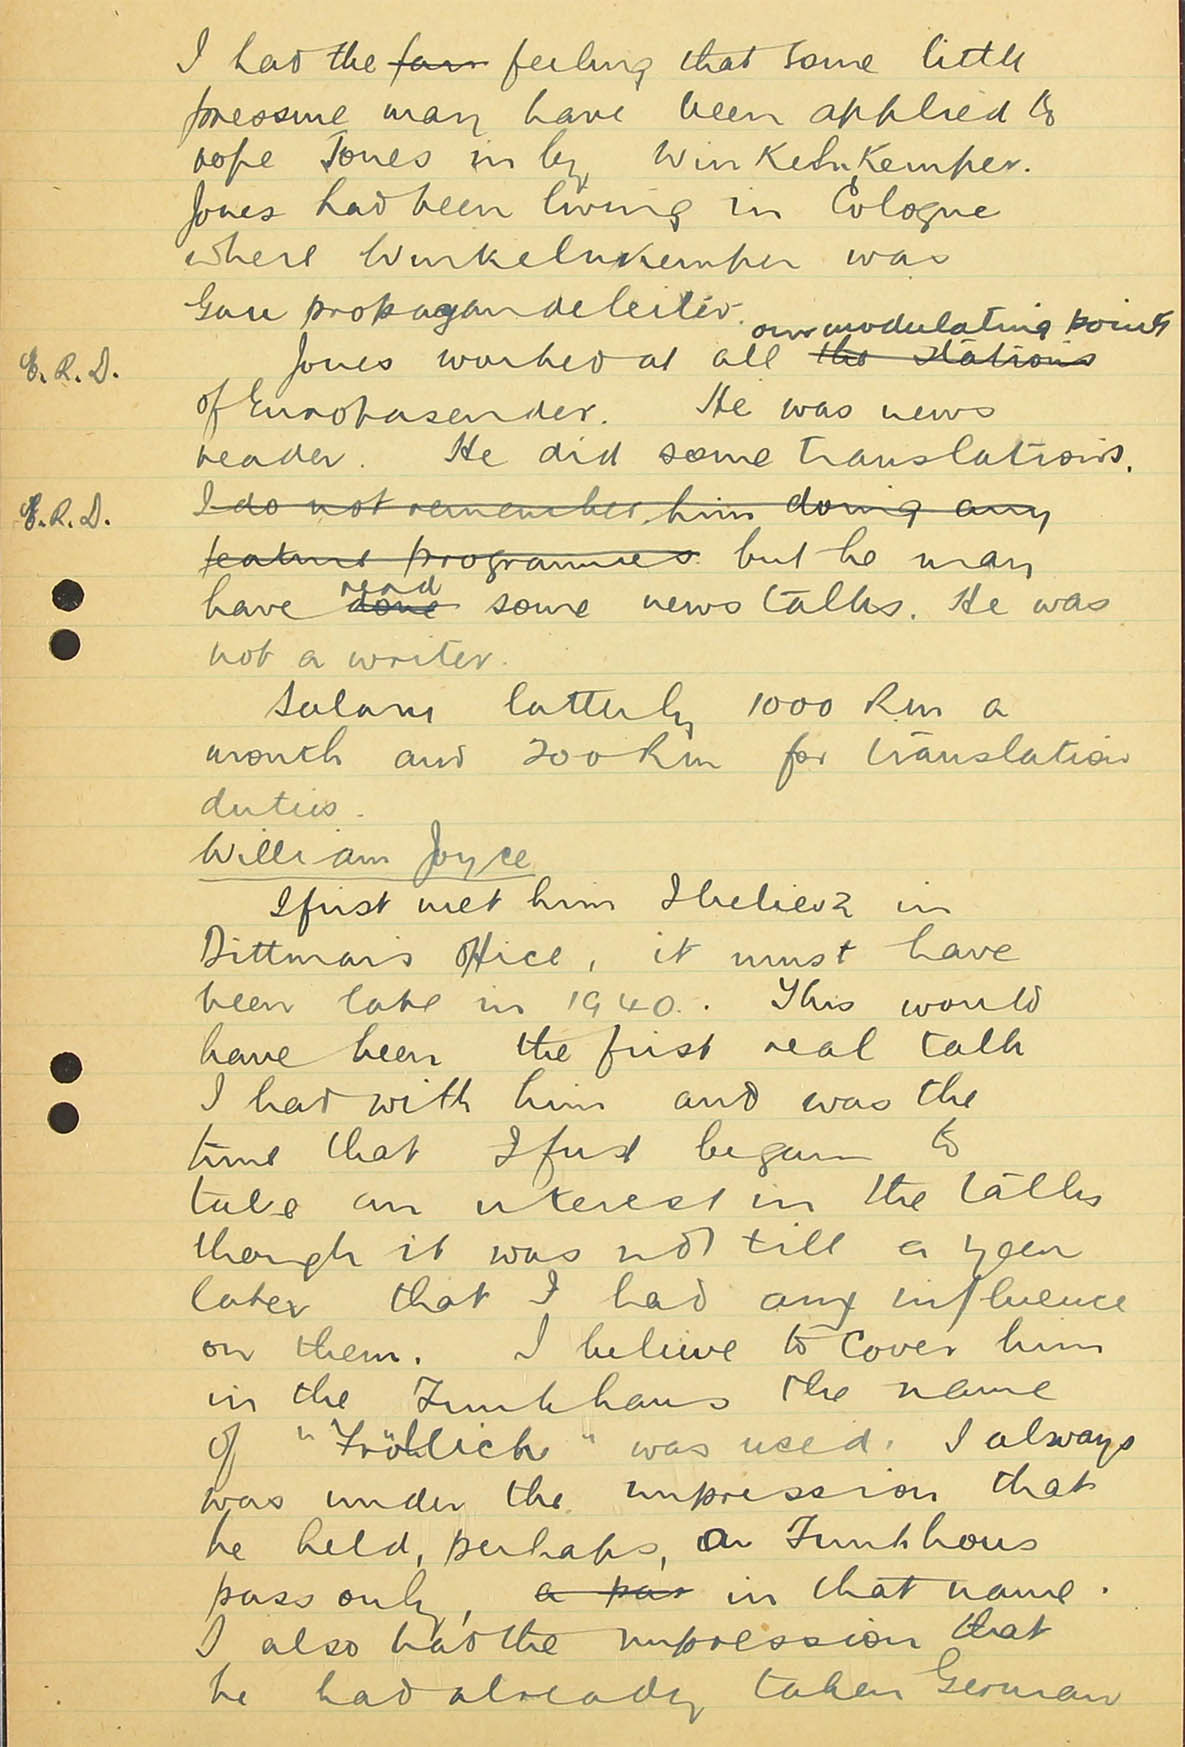 I had the feeling that some little
pressure may have been applied to
rope Jones in by Winkelnkemper.
Jones had been living in Cologne
where Winkelnkemper was
Gau propagandeleiter.
our modulating points
E.R.D. Jones worked at all the stations
of Europasender. He was news
reader. He did some translations.
E.R.D. I do not remember him doing any
feature programmes but he may
read
have done some news talks. He was
not a writer.
Salary latterly 1000 Rm a
month and 200 Rm for translation
duties.
William Joyce
I first met him I believe in
Dittmars office, it must have
been late in 1940. This would
have been the first real talk
I had with him and was the
time that I first began to
take an interest in the talks
though it was not till a year
later that I had any influence
on them. I believe to cover him
in the Funkhaus the name
of "Fröhlich" was used. I always
was under the impression that
he held, perhaps, a Funkhaus
pass only, a pas in that name.
I also had the impression that
he had already taken German